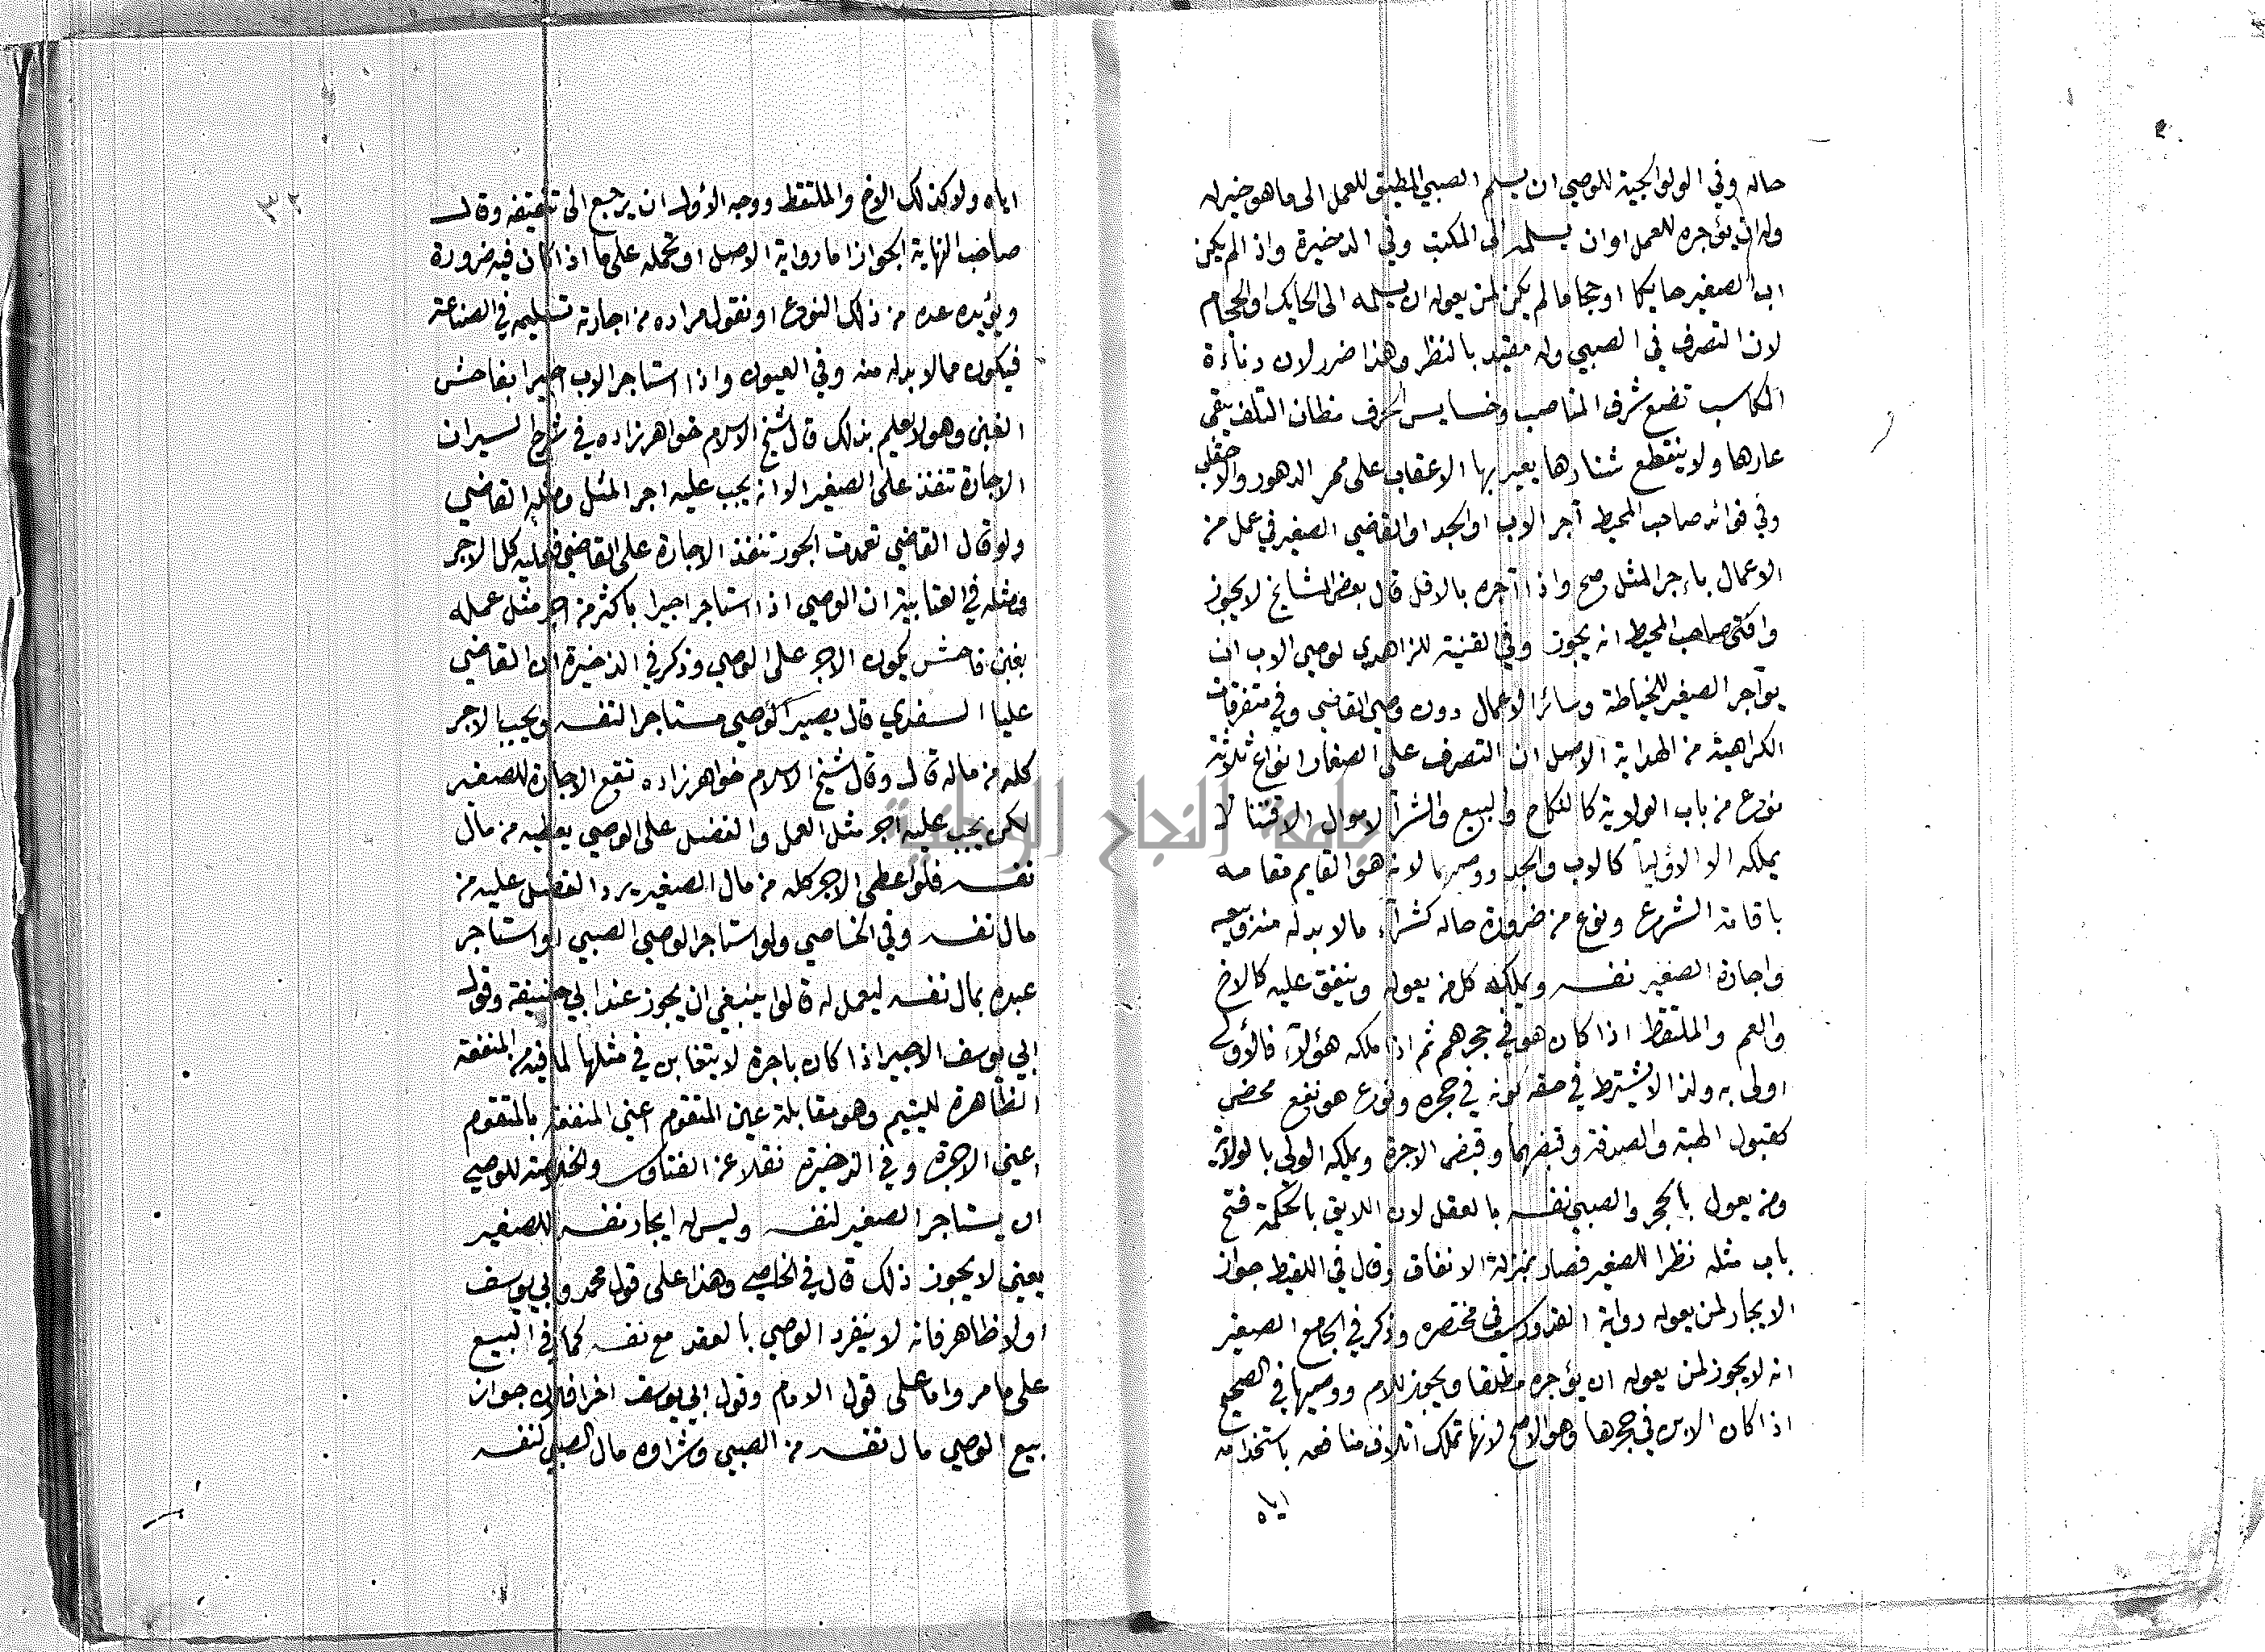 حاله وفي الولوالجية للوصي ان يسلم الصبي المطيق للعمل الى ما هو خير له
وله ان يؤجره للعمل او ان يسلمه الى المكتب وفي الذخيرة واذا لم يكن
اب الصغير حايكا او حجاما لم يكن لمن يعوله ان يسلمه الى الحايك او الحجام
لان التصرف في الصبي وله مقيد بالنظر وهذا ضرر لان دناءة
المكاسب تضع شرف المناصب وخسايس الحرف مظان التلف يبقى
عارها ولا ينقطع شنارها يعير بها الاعقاب على ممر الدهور والاحقاب
وفي فوائد صاحب المحيط أجر الاب او الجد او القاضي الصغير في عمل من
الاعمال باءجر المثل صح واذا آجره بالاقل قال بعض المشايخ لا يجوز
وافتى صاحب المحيط انه يجوز وفي القنية للزاهدي لوصي الاب ان
يوآجر الصغير للخياطة وسائر الاعمال دون وصي القاضي وفي متفرقات
الكراهية من الهداية الاصل ان التصرف على الصغار انواع ثلاثة
نوع من باب الولاية كالنكاح والبيع والشرآ لاموال الاقتنا لا
يملكه الا الاوليآ كالاب والجد ووصيهما لانه هو القايم مقامه
باقامة الشرع ونوع من ضرورة حاله كشرآء ما لا بد له منه وبيعه
واجارة الصغير نفسه ويملكه كل من يعوله وينفق عليه كالاخ
والعم والملتقط اذا كان هو في حجرهم ثم اذا ملكه هؤلآء فالاولى
اولى به ولذا لا يشترط في حقه كونه في حجره ونوع هو نفع محض
كقبول الهبة والصدقة وقبضهما وقبض الاجرة ويملكه الولي بالولاية
ومن يعول بالحجر والصبي نفسه بالعقل لان اللايق بالحكمة فتح
باب مثله نظرا للصغير فصار بمنزلة الانفاق وقال في اللقيط جواز
الايجار لمن يعوله رواية القدوري في مختصره وذكر في الجامع الصغير
انه لا يجوز لمن يعوله ان يؤجره مطلقا ويجوز للام ووصيها في الصحيح
اذا كان الابن في حجرها وهو الاصح لانها تملك اتلاف منافعه باستخدامه
اياه
٣٢
اياه ولا كذلك الاخ والملتقط ووجه الأول ان يرجع الى تنقيفه وقال
صاحب النهاية الجواز اما رواية الاصل او تحمله على ما اذا كان فيه ضرورة
ويؤيده عده من ذلك النوع او نقول مراده من اجارته تسليمه في الصناعة
فيكون مما لا بد له منه وفي العيون واذا استاجر الاب اجيرا بفاحش
الغبن وهو لا يعلم بذلك قال شيخ الاسلام خواهر زاده في شرح السير ان
الاجارة تنفذ على الصغير الا انه يجب عليه اجر المثل ومثله القاضي
ولو قال القاضي تعمدت الجور تنفذ الاجارة على القاضي فعليه كل الاجر
ومثله في العتابية ان الوصي اذا استاجر اجيرا باكثر من اجر مثل عمله
بغبن فاحش يكون الاجر على الوصي وذكر في الذخيرة ان القاضي
عليا السغدي قال يصير الوصي مستاجرا لنفسه ويجب الاجر
كله من ماله قال وقال شيخ الاسلام خواهر زاده تقع الاجارة للصغير
لكن يجب عليه اجر مثل العمل والفضل على الوصي يعطيه من مال
نفسه فلو اعطى الاجر كله من مال الصغير يرد الفضل عليه من
مال نفسه وفي الخاصي ولو استاجر الوصي الصبي او استاجر
عبده بمال نفسه ليعمل له قالوا ينبغي ان يجوز عند ابي حنيفة وقول
ابي يوسف الاخير اذا كان باجرة لا يتغابن في مثلها لما فيه من المنفعة
الظاهرة لليتيم وهو مقابلة عين المتقوم اعني المنفعة بالمتقوم
اعني الاجرة وفي الذخيرة نقلا عن الفتاوى والخلاصة للوصي
ان يستاجر الصغير لنفسه وليس له ايجار نفسه للصغير
يعني لا يجوز ذلك قال في الخاصي وهذا على قول محمد وابي يوسف
اولا ظاهر فانه لا ينفرد الوصي بالعقد مع نفسه كما في البيع
على ما مر واما على قول الامام وقول ابي يوسف اخرا فلان جواز
بيع الوصي مال نفسه من الصبي وشراوه مال الصبي لنفسه
جامعة النجاح الوطنية